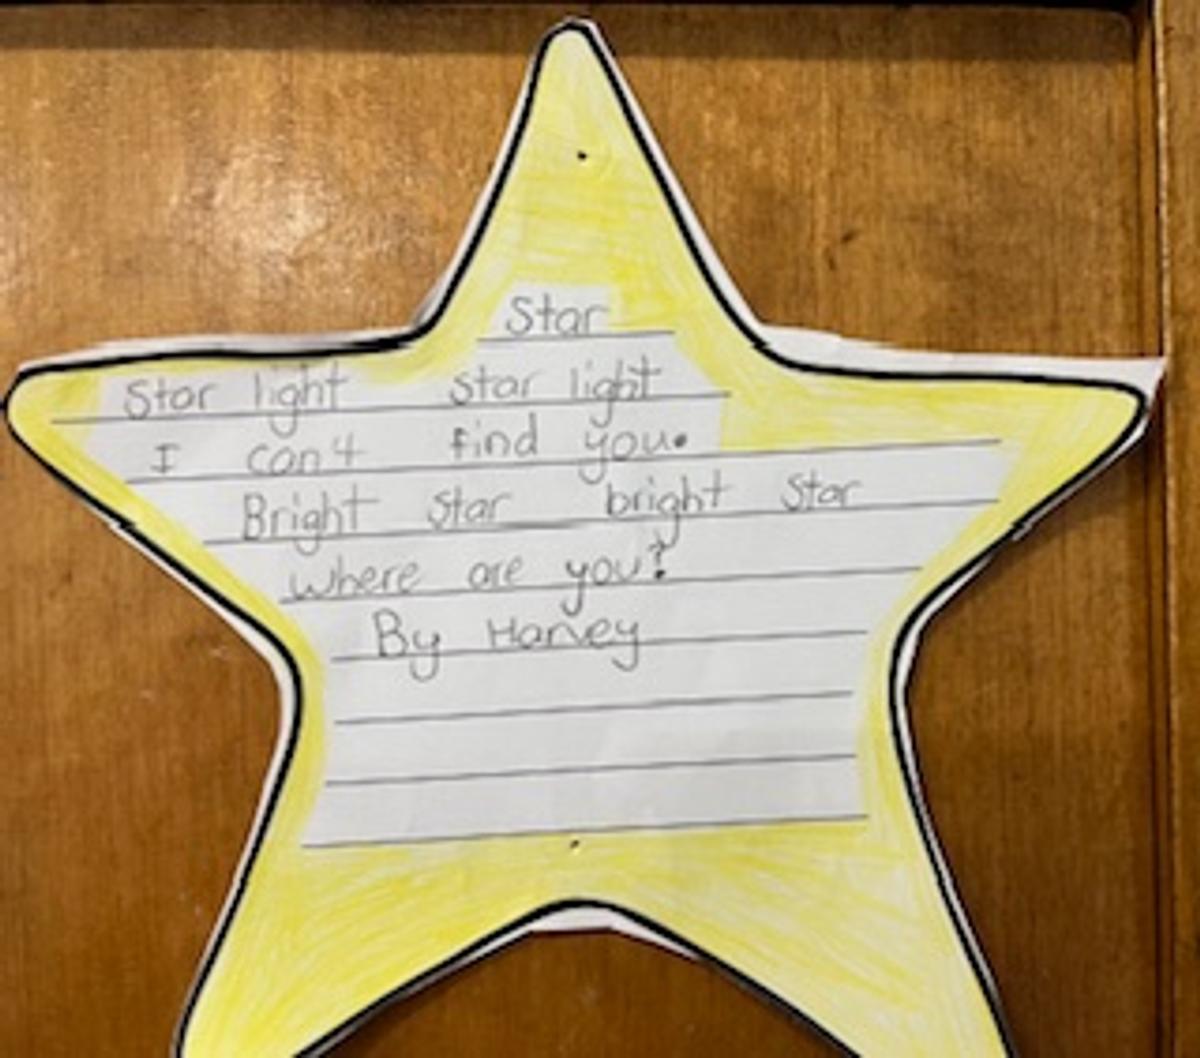 Star
Star light star light
I can't find you.
Bright star bright star
where are you?
By Harvey